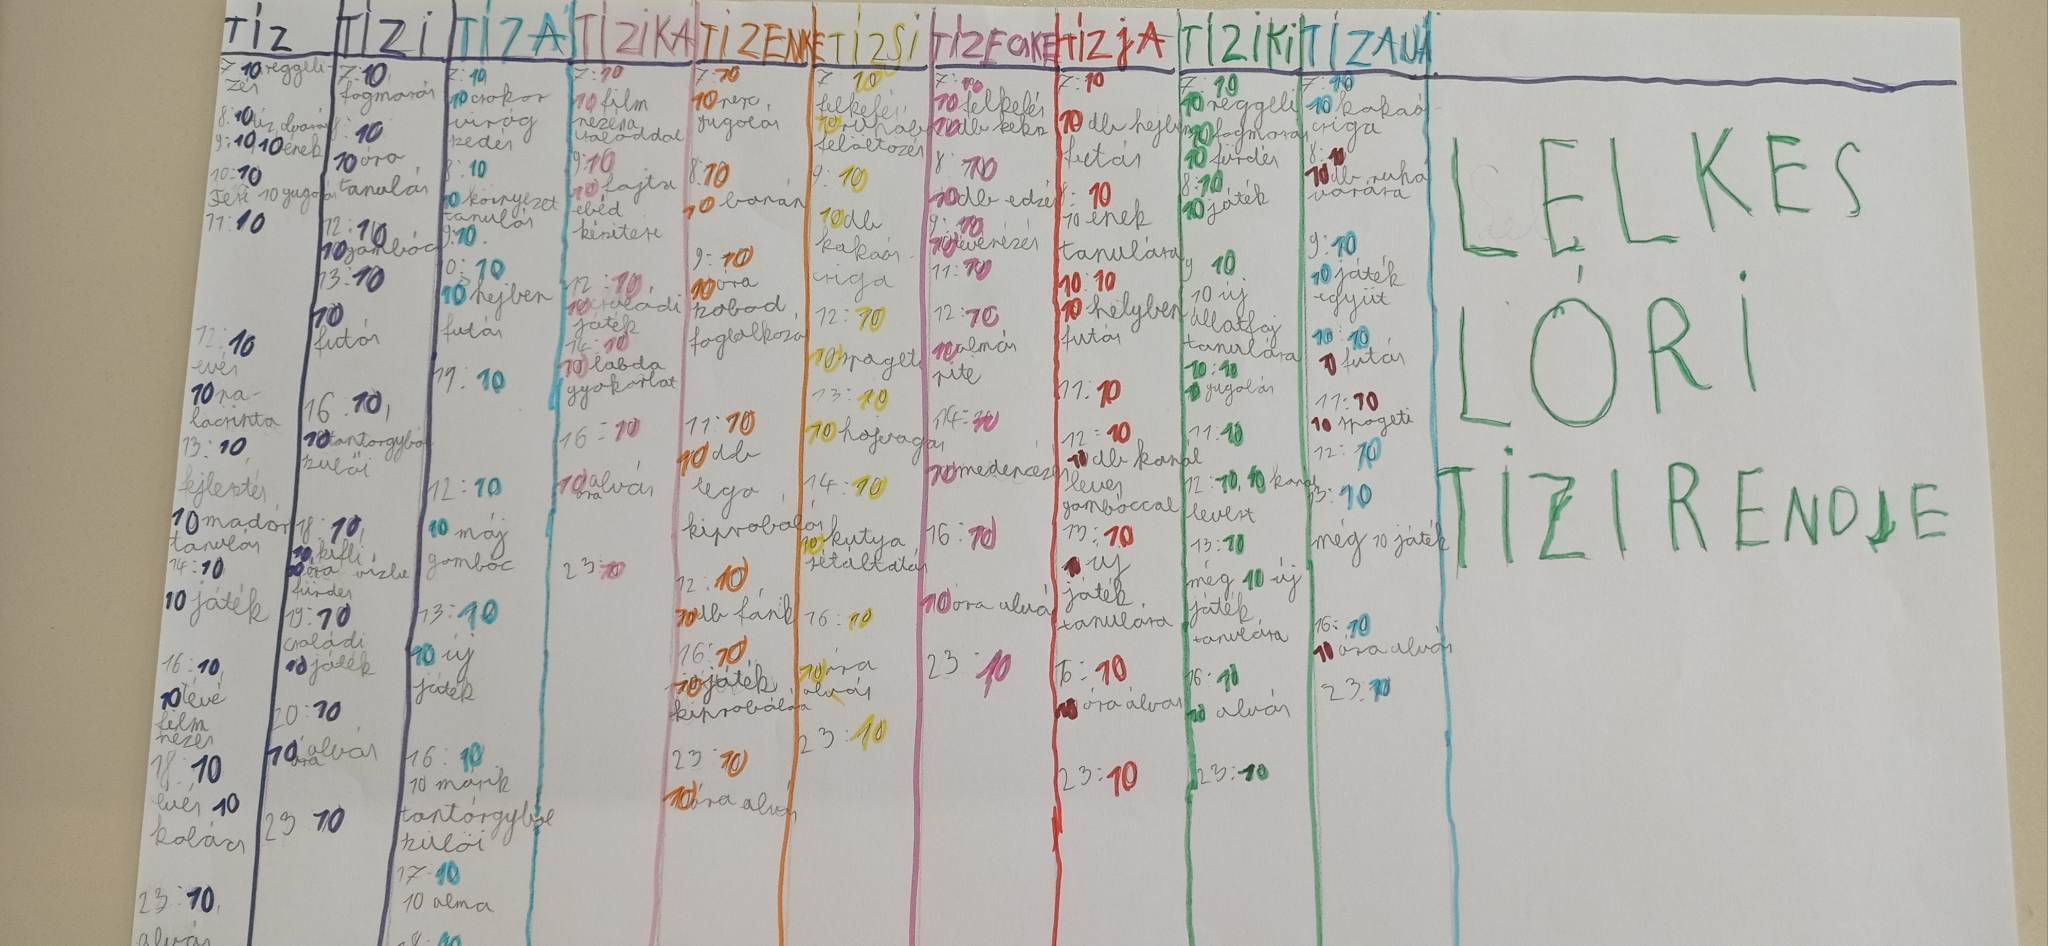 TÍZ
7 10 reggeli-
zés
9:10, 10 ének
10:10
11:10
12:10
evés
10 pa-
lacsinta
13:10
10 madár
tanulás
14:10
10 játék
16:10,
10 tévé
film
nézés
18:10
evés 10
kalács
23:10,
alvás
TÍZI
7:10,
fogmosás
8:10
10 óra
tanulás
12:10
10 gombóc
13:10
10
futás
16:10,
10 tantárgyból
külöi
18:10,
10 kifli,
fürdés
19:10
családi
10 játék
20:10
10 óra alvás
23 10
TÍZA
7:10
10 csokor
virág
szedés
8:10
10 környezet
tanulás
9:10.
10:10
10 hejben
futás
11:10
12:10
10 máj
gombóc
13:10
10 új
játék
16:10
10 másik
tantárgyból
külöi
17:10
10 alma
18:10
TÍZIKA
7:10
10 film
nézése
családdal
9:10
10 fajta
ebéd
készítése
12:10,
10 családi
játék
14:10
10 labda
gyakorlat
16:10
10 óra alvás
23:10
TÍZENKE
7:10
10 perc,
jugolás
8:10
10 banán
9:10
10 óra
szabad
foglalkozás
11:10
10 db
lego
kipróbálás
12:10
10 db fánk
16:10
10 játék
kipróbálása
23 10
10 óra alvás
TÍZSI
7 10
felkelés,
10 ruhab
felöltözés
9:10
10 db
kakaós
csiga
12:10
10 spageti
13:10
10 hajvágás
14:10
10 kutya
sétáltatás
16:10
10 óra
alvás
23:10
TÍZECKE
7:10
10 felkelés
10 db keksz
8:10
10 db edzés
9:10
10 tévénézés
11:10
12:10
10 almás
pite
14:10
10 medencézés
16:10
10 óra alvás
23:10
TÍZJA
7:10
10 db hejben
futás
8:10
10 ének
tanulása
10:10
10 helyben
futás
11:10
12:10
10 db kanál
leves
gombóccal
13:10
10 új
játék
tanulása
16:10
10 óra alvás
23:10
TÍZIKI
7:10
10 reggeli
10 fogmosás
10 fürdés
8:10
10 játék
9 10
10 új
állatfaj
tanulása
10:10
10 jugolás
11:10
12:10, 10 kanál
levest
13:10
még 10 új
játék
tanulása
16:10
10 alvás
23:10
TÍZAUA
7:10
10 kakaó
csiga
8:10
10 db ruha
9:10
10 játék
együt
10:10
10 futás
11:10
10 spageti
12:10
13:10
még 10 játék
16:10
10 óra alvás
23:10
LELKES
LÓRI
TÍZIRENDJE